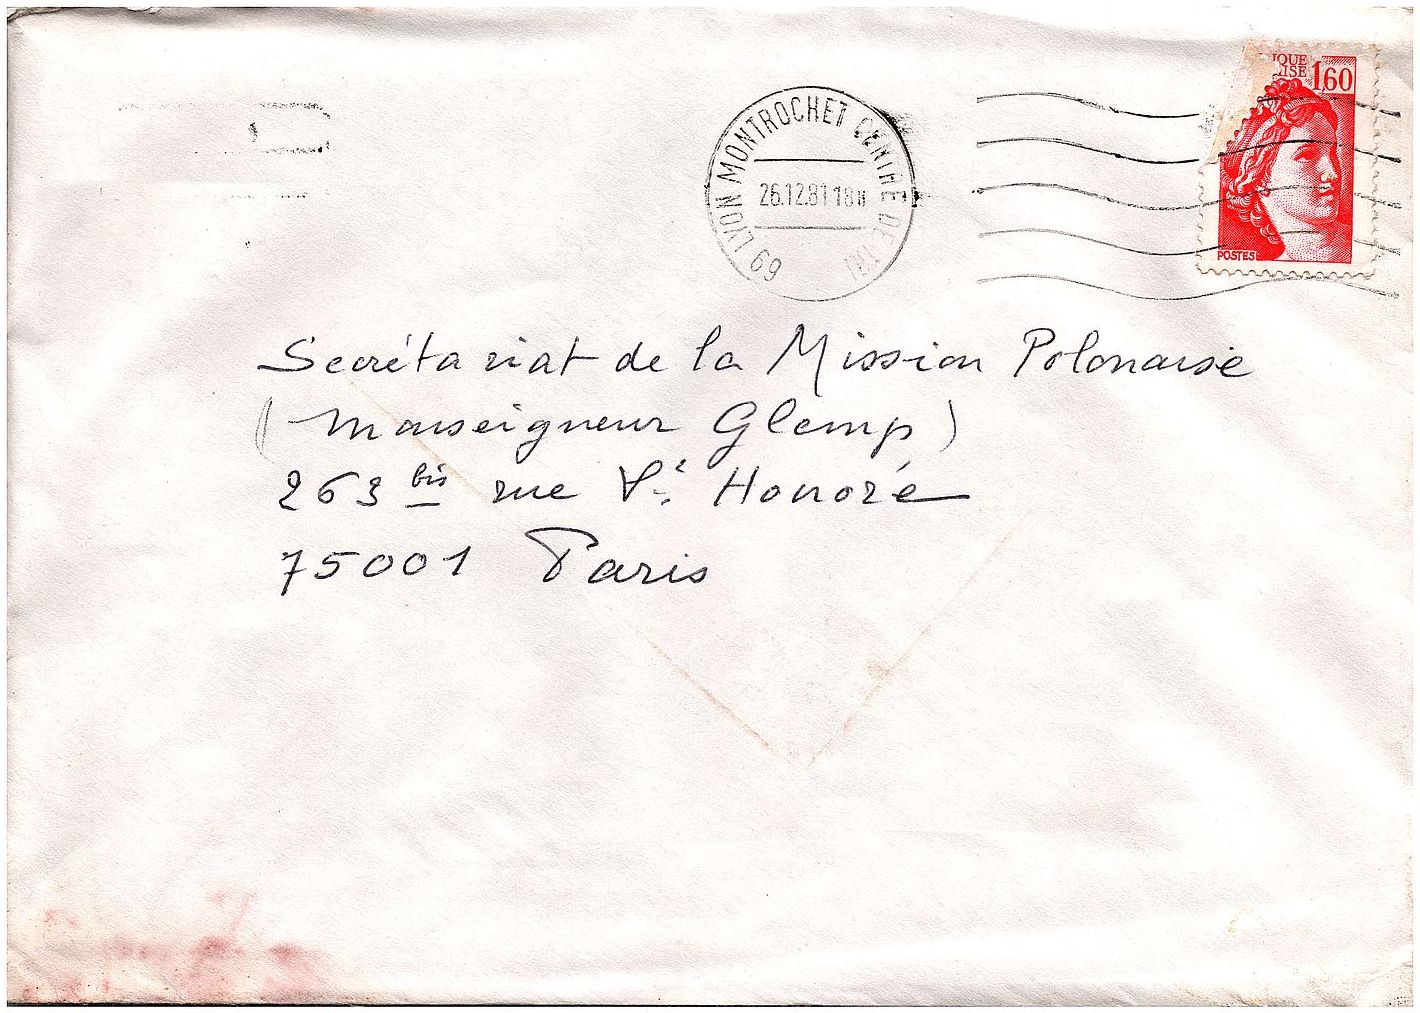 IQUE
AISE 1,60
POSTES
69 LYON MONTROCHET CENTRE DE TRI
26.12.81 18H
Secrétariat de la Mission Polonaise
(Monseigneur Glemp)
263 bis rue St Honoré
75001 Paris